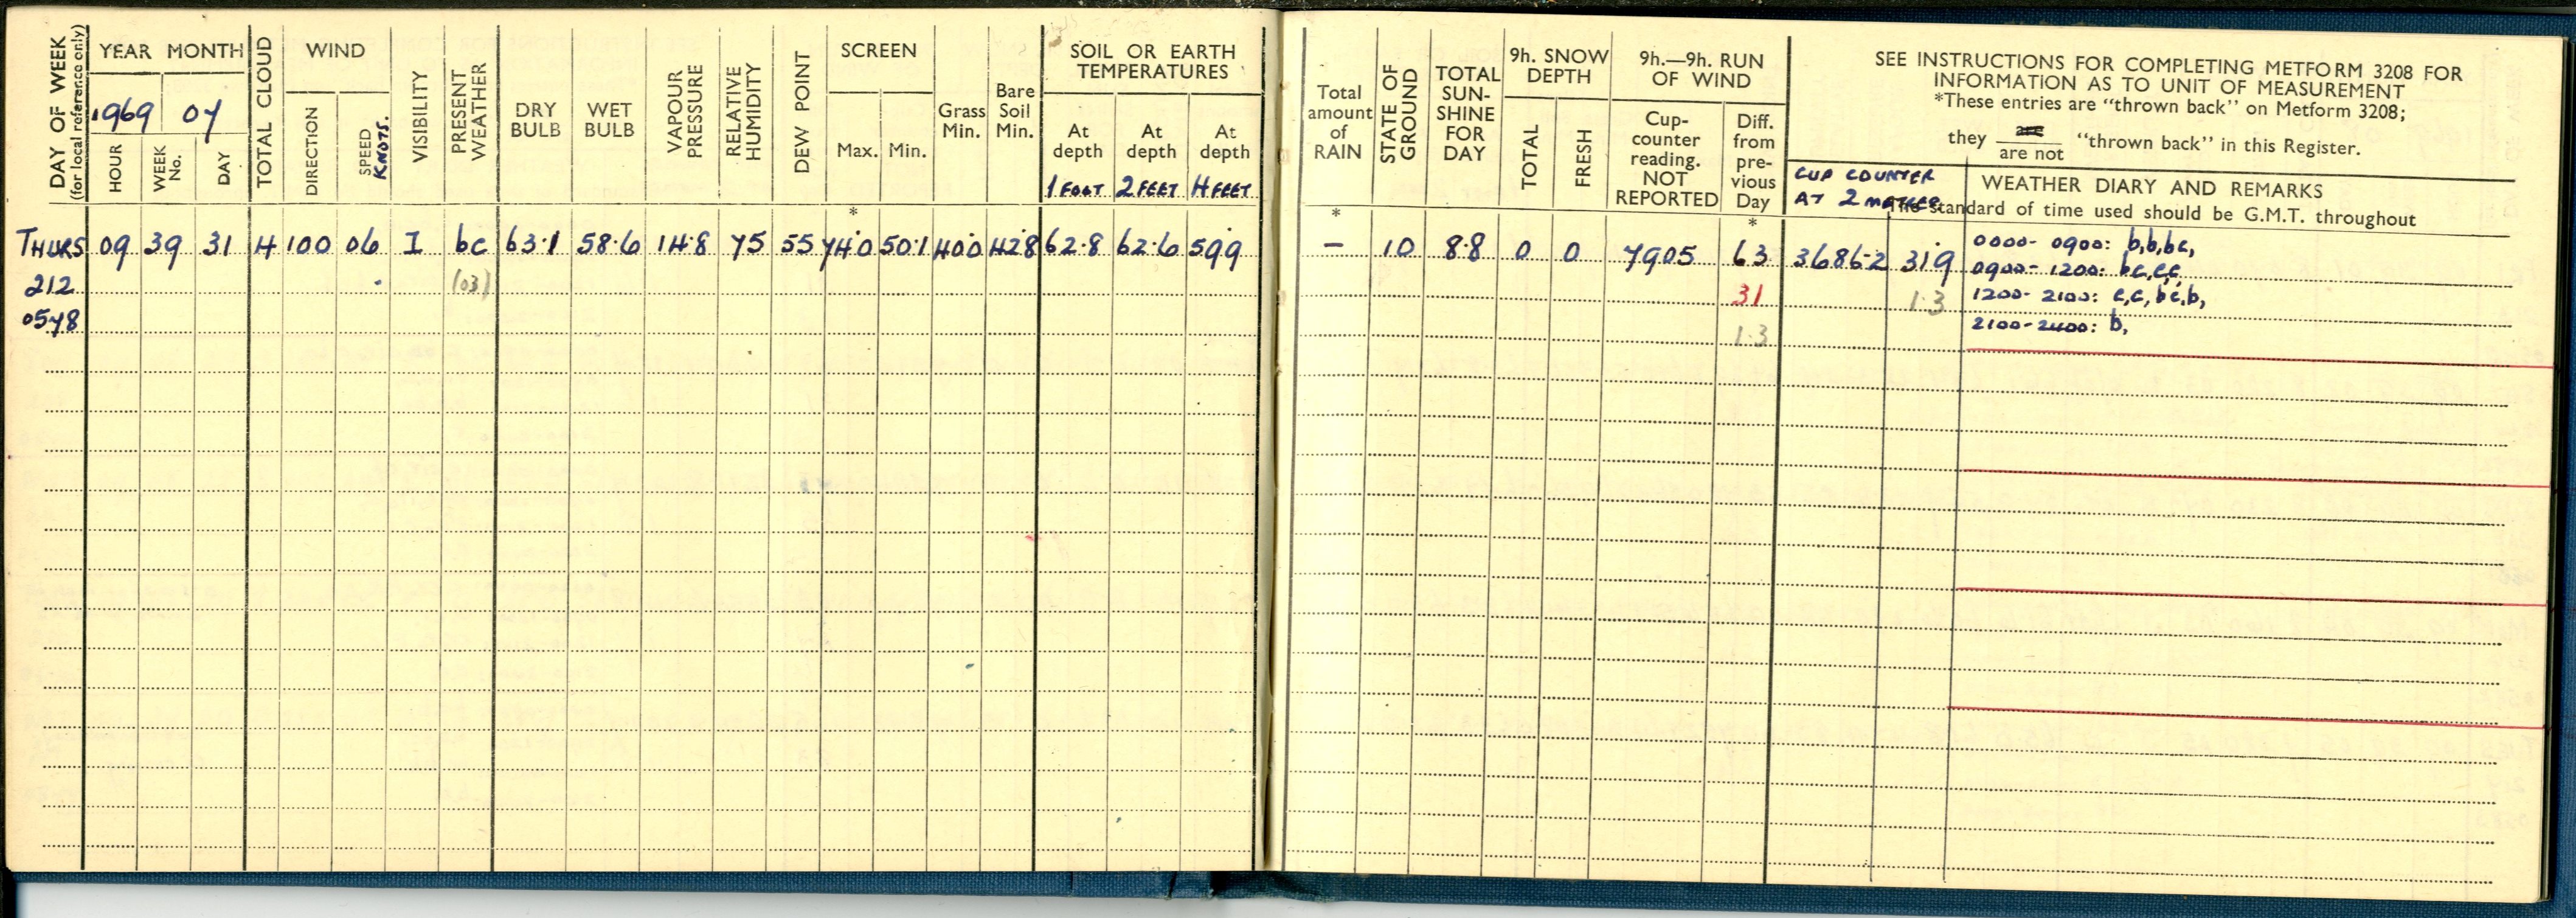 DAY OF WEEK
(for local reference only)
YEAR MONTH
1969 07
HOUR
WEEK No.
DAY
TOTAL CLOUD
WIND
DIRECTION
SPEED
KNOTS.
VISIBILITY
PRESENT WEATHER
DRY BULB
WET BULB
VAPOUR PRESSURE
RELATIVE HUMIDITY
DEW POINT
SCREEN
Max.
Min.
Grass Min.
Bare Soil Min.
SOIL OR EARTH TEMPERATURES
At depth
1 FOOT
At depth
2 FEET
At depth
4 FEET
Total amount of RAIN
STATE OF GROUND
TOTAL SUN-SHINE FOR DAY
9h. SNOW DEPTH
TOTAL
FRESH
9h.—9h. RUN OF WIND
Cup-counter reading. NOT REPORTED
Diff. from pre-vious Day
SEE INSTRUCTIONS FOR COMPLETING METFORM 3208 FOR
INFORMATION AS TO UNIT OF MEASUREMENT
*These entries are "thrown back" on Metform 3208;
they are / are not "thrown back" in this Register.
CUP COUNTER
AT 2 METRES
WEATHER DIARY AND REMARKS
The standard of time used should be G.M.T. throughout
* * *
THURS 09 39 31 4 100 06 I bc 63.1 58.6 14.8 75 55 74.0 50.1 40.0 42.8 62.8 62.6 59.9 — 10 8.8 0 0 7905 63 3686.2 31.9 0000- 0900: b,b,bc,
0900- 1200: bc,c,c,
212 (03) 31 1.3 1200- 2100: c,c,bc,b,
0578 1.3 2100-2400: b,